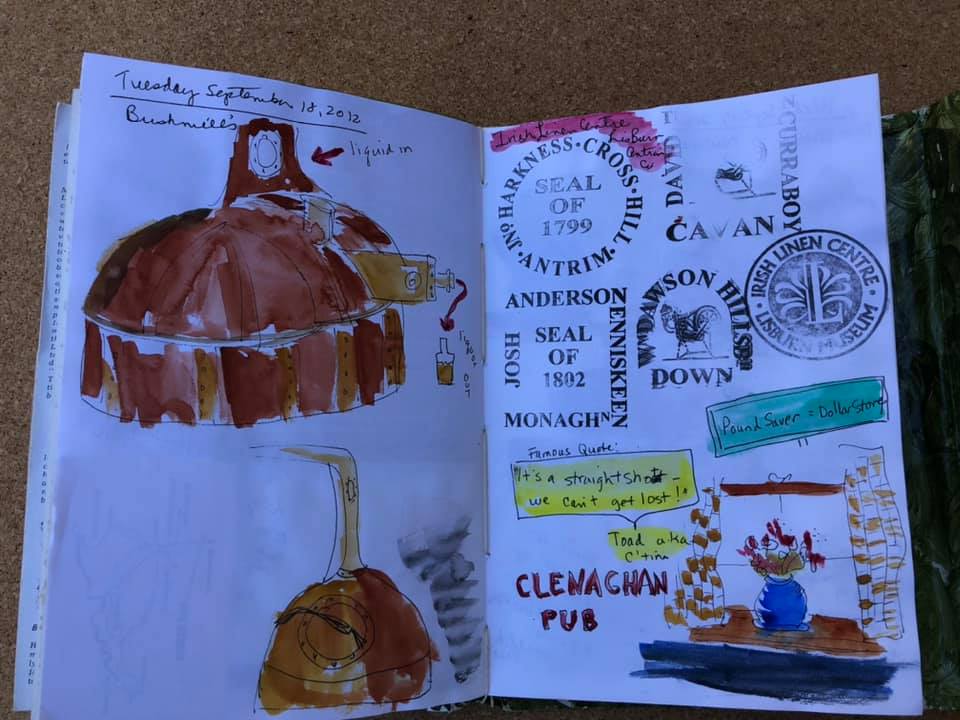 Tuesday September 18, 2012
Bushmill's
liquid in
liquor
out
Irish Linen Centre
Lisburn
Antrim
Co
JNO HARKNESS · CROSS · HILL · ANTRIM ·
SEAL
OF
1799
DAVID
CURRABOY
CAVAN
JOSH
ANDERSON
ENNISKEEN
SEAL
OF
1802
MONAGHN
WM DAWSON HILLSBR
DOWN
· IRISH LINEN CENTRE ·
LISBURN MUSEUM
Pound Saver = Dollar Store
Famous Quote:
"It's a straight shot -
we can't get lost!"
Toad a.k.a
C'tina
CLENAGHAN
PUB